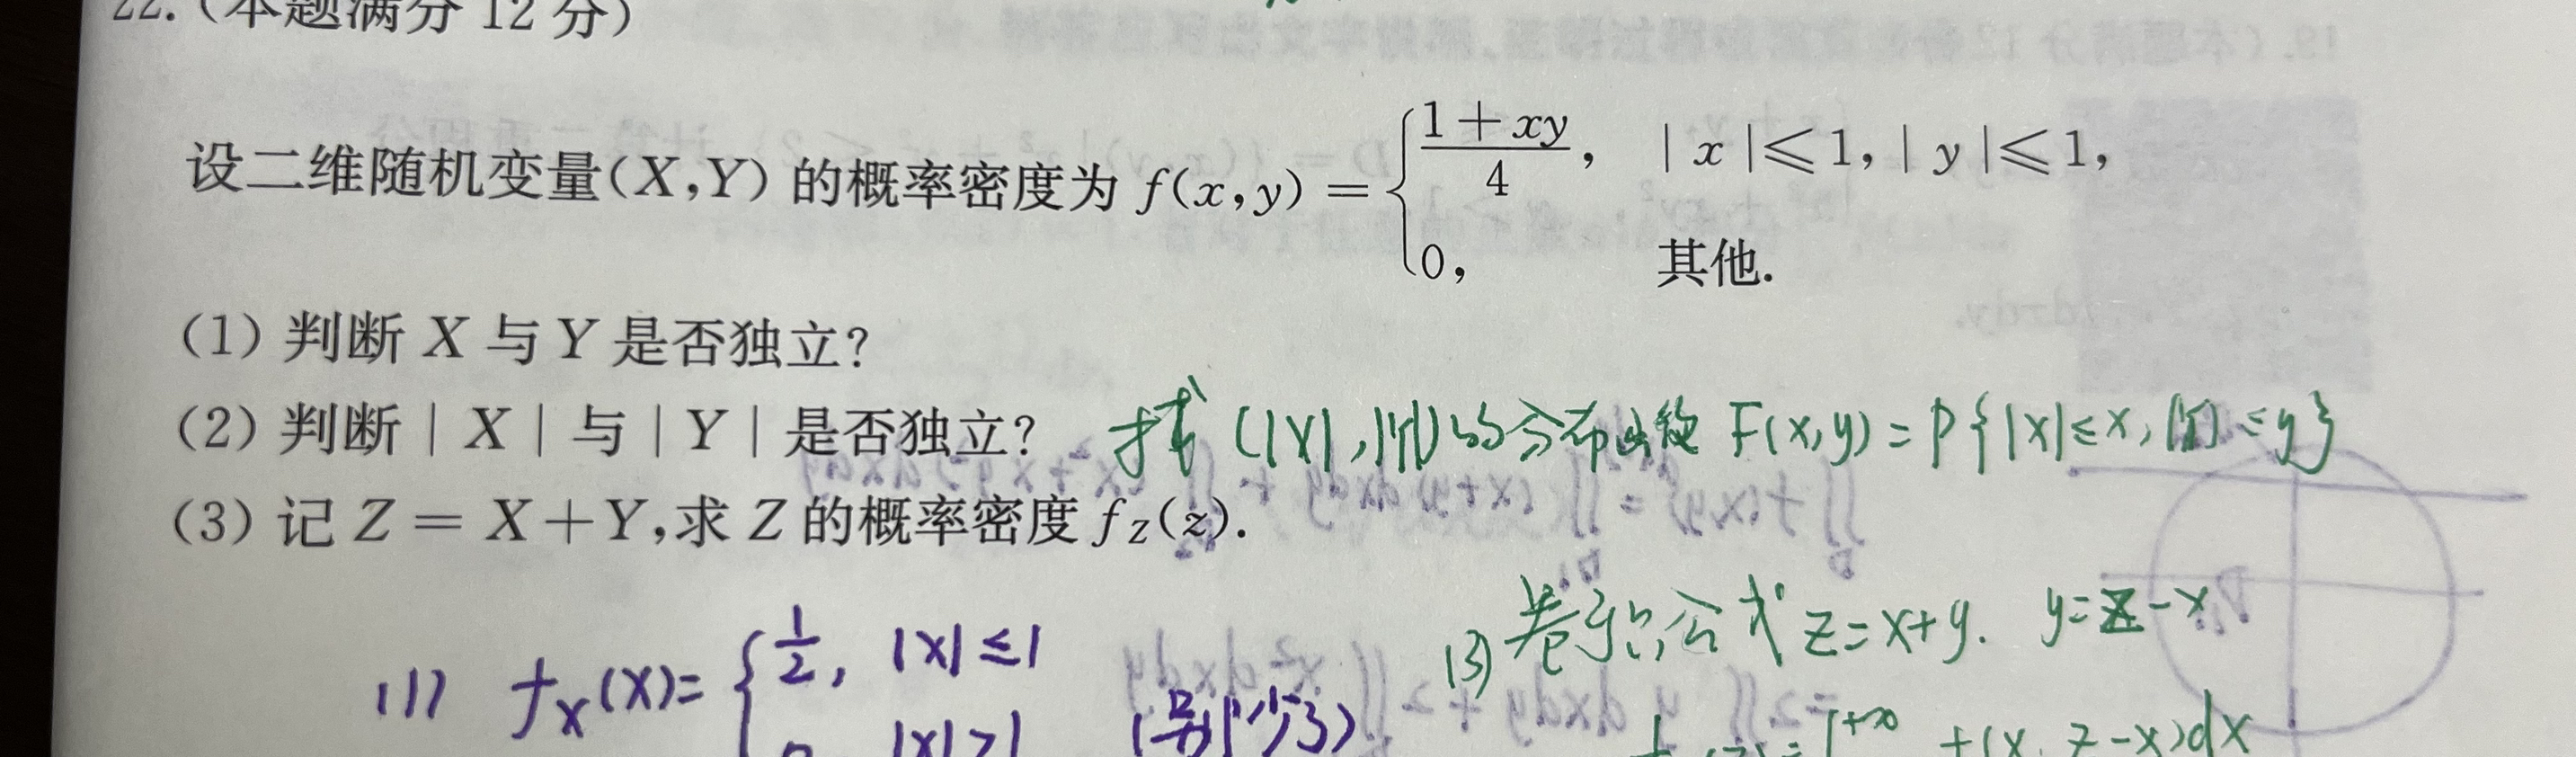 22.(本题满分 12 分)
设二维随机变量(X,Y) 的概率密度为 f(x,y) = { (1+xy)/4, |x|≤1,|y|≤1,
0, 其他.
(1) 判断 X 与 Y 是否独立?
(2) 判断 |X| 与 |Y| 是否独立? 求 (|X|,|Y|)的分布函数 F(x,y)=P{|X|≤x,|Y|≤y}
(3) 记 Z = X+Y,求 Z 的概率密度 f_Z(z).
(3) 卷积公式 z=x+y. y=z-x
(1) f_X(x)= { 1/2, |x|≤1
|x|>1 (别少了)
+∞ f(x, z-x)dx